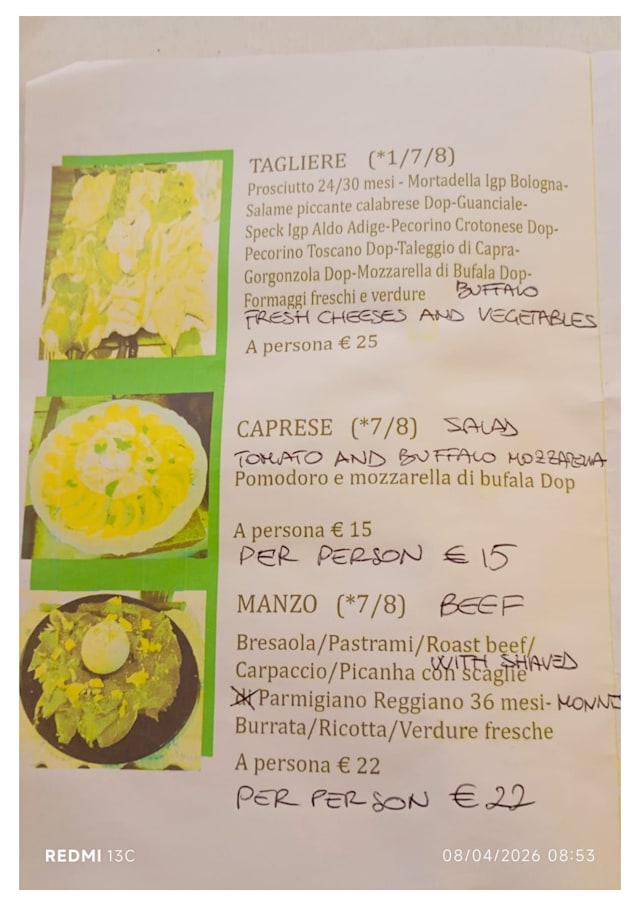 TAGLIERE (*1/7/8)
Prosciutto 24/30 mesi - Mortadella Igp Bologna-
Salame piccante calabrese Dop-Guanciale-
Speck Igp Aldo Adige-Pecorino Crotonese Dop-
Pecorino Toscano Dop-Taleggio di Capra-
Gorgonzola Dop-Mozzarella di Bufala Dop-
Formaggi freschi e verdure BUFFALO
FRESH CHEESES AND VEGETABLES
A persona € 25
CAPRESE (*7/8) SALAD
TOMATO AND BUFFALO MOZZARELLA
Pomodoro e mozzarella di bufala Dop
A persona € 15
PER PERSON € 15
MANZO (*7/8) BEEF
Bresaola/Pastrami/Roast beef/
WITH SHAVED
Carpaccio/Picanha con scaglie
Parmigiano Reggiano 36 mesi-
Burrata/Ricotta/Verdure fresche
A persona € 22
PER PERSON € 22
REDMI 13C
08/04/2026 08:53